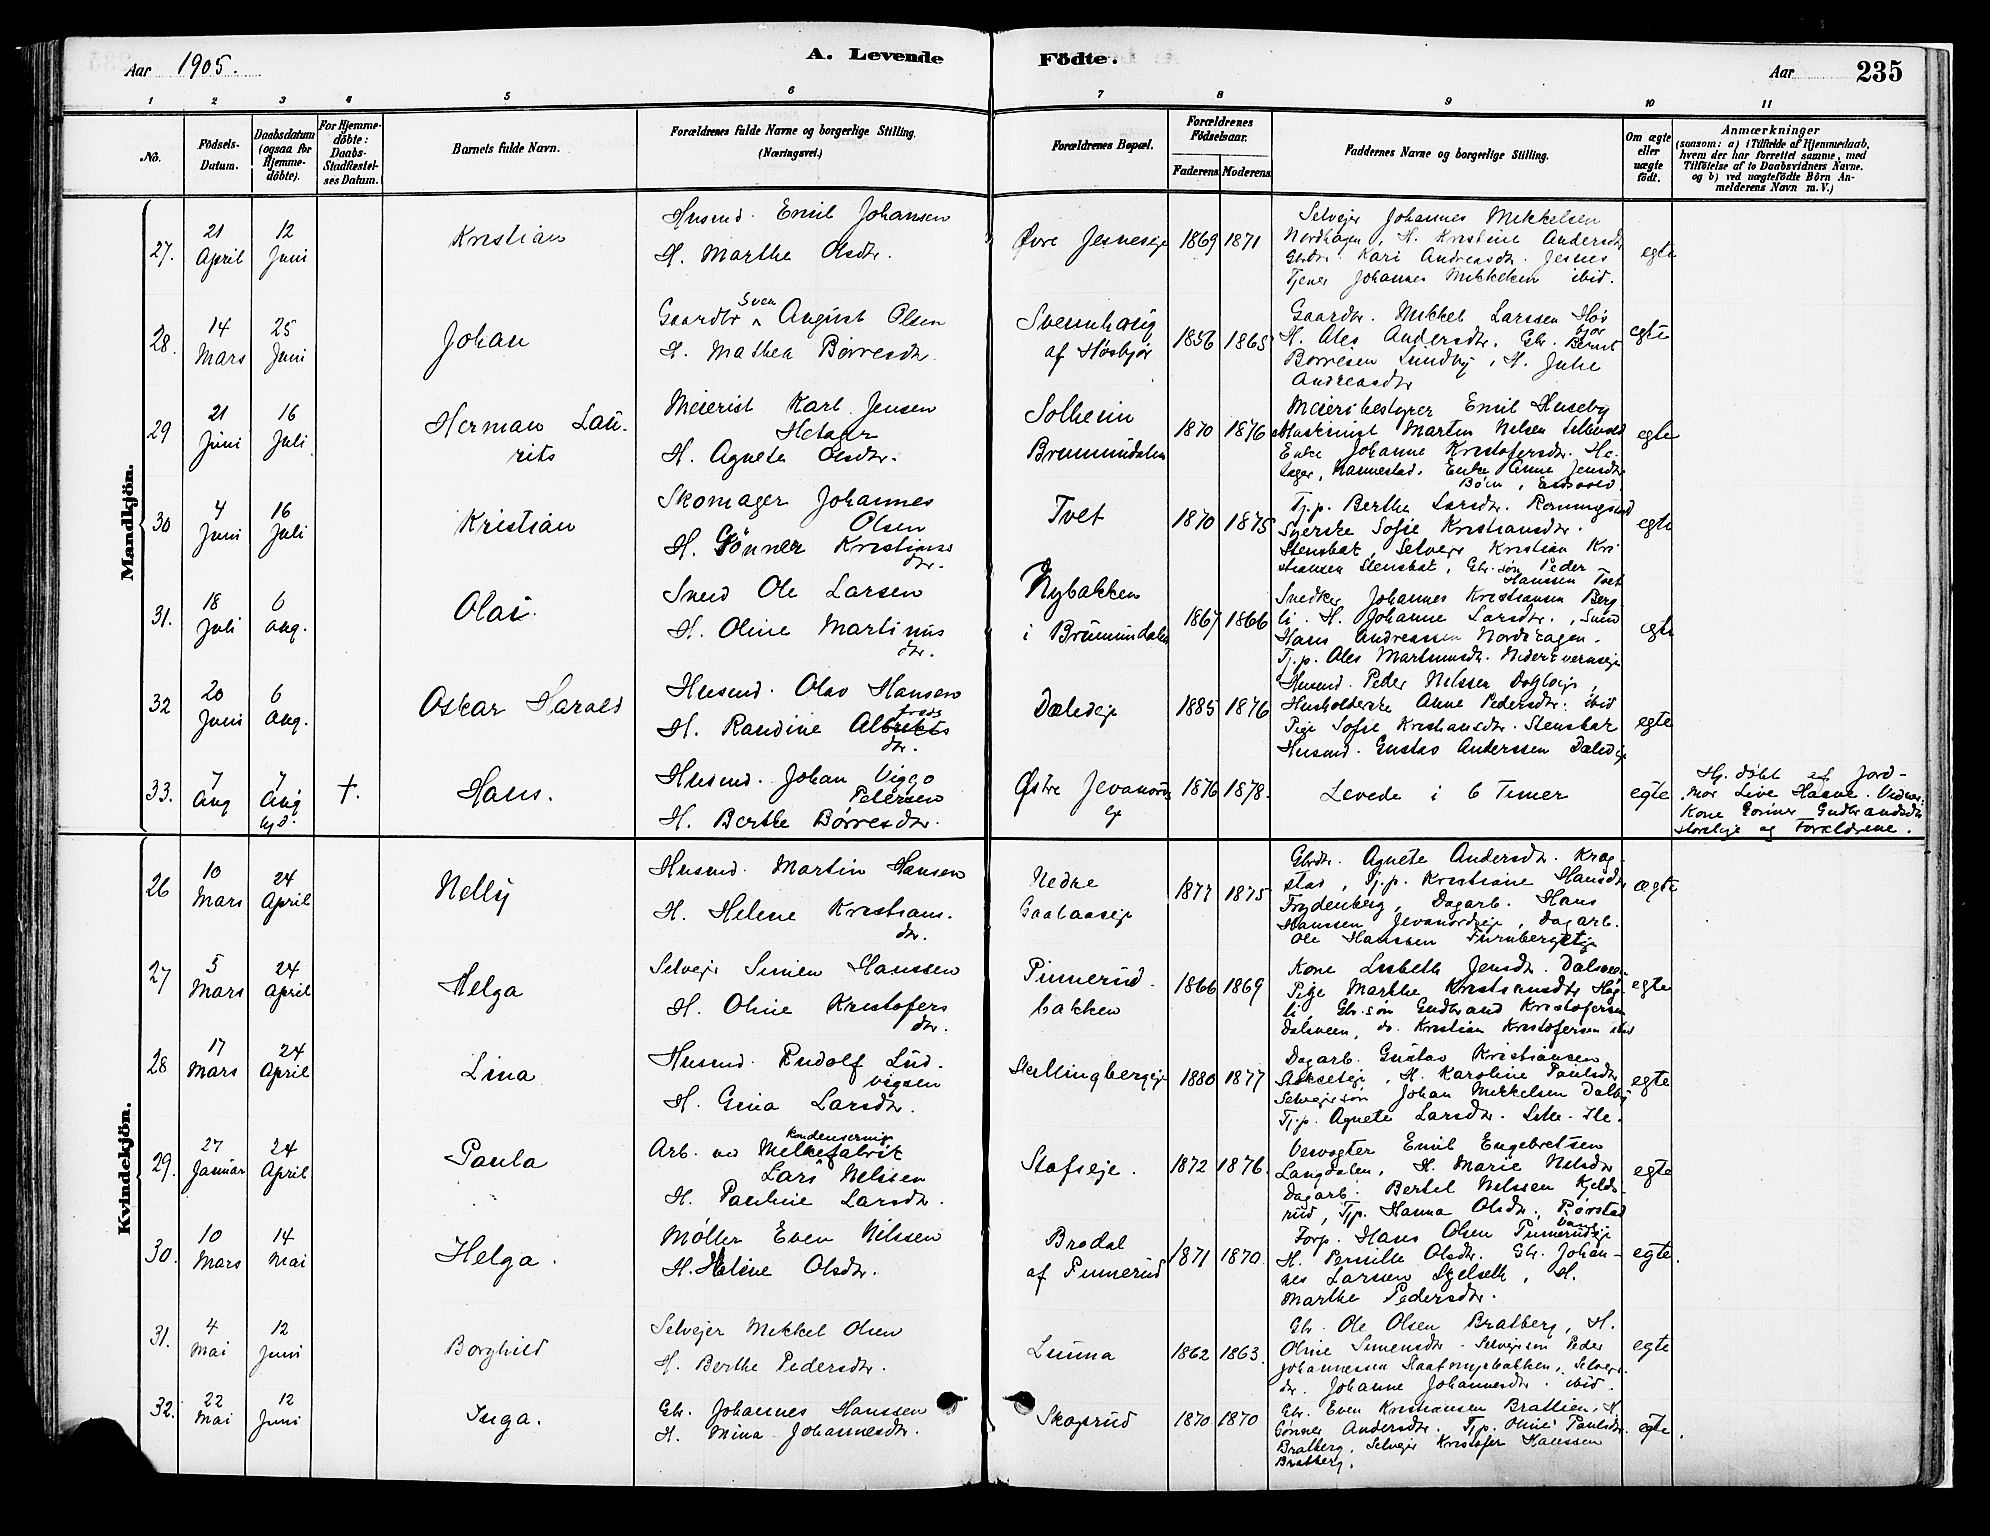 Aar 1905.
A. Levende
Födte.
Aar
235
1 2 3 4 5 6 7 8 9 10 11
No.
Födsels-Datum.
Daabsdatum (ogsaa for Hjemmedöbte).
For Hjemmedöbte: Daabs-Stadfæstelses Datum.
Barnets fulde Navn.
Forældrenes fulde Navne og borgerlige Stilling. (Næringsvei.)
Forældrenes Bopæl.
Forældrenes Födselsaar.
Faderens Moderens
Faddernes Navne og borgerlige Stilling.
Om ægte eller uægte födt.
Anmærkninger
(saasom: a) i Tilfælde af Hjemmedaab,
hvem der har forrettet samme, med
Tilföielse af to Daabsvidners Navne.
og b) ved uægtefödte Börn An-
melderens Navn m. V.)
Mandkjön.
27. 21 April 12 Juni Kristian
Husmd. Emil Johansen
H. Marthe Olsdtr.
Øvre Jesneseje 1869 1871
Selvejer Johannes Mikkelsen
Nordhagen, H. Kristine Andersdtr
Gbrdtr. Kari Andreasdtr. Jesnes
Tjener Johannes Mikkelsen ibid.
egte
28. 14 Mars 25 Juni Johan
Gaardbr Sven August Olsen
H. Mathea Børresdtr.
Svenhaug
af Høsbjør
1856 1865
Gaardbr. Mikkel Larssen Høs
bjør
H. Ales Andersdtr. Gbr. Bernt
Børresen Lundby, H. Julie
Andreasdtr
egte
29 21 Juni 16 Juli Herman Lau-
rits
Meierist Karl Jensen
Hetager
H. Agnete Olsdtr.
Solheim
Brumundalen
1870 1876
Meieribestyrer Emil Huseby
Maskinist Martin Nelsen
Enke Johanne Kristofersdtr. He-
tager, Kannestad. Enke Anne Jensdtr
Bøhn, Eidsvold.
egte
30 4 Juni 16 Juli Kristian
Skomager Johannes
Olsen
H. Gønner Kristians
dtr.
Tvet 1870 1875
Tj.p. Berthe Larsdtr. Rømmgsud
Syerske Sofie Kristiansdtr.
Stensbat, Selvejer Kristian Kri
stiansen Stensbat, Gbr. søn Peder
Hanssen Tvet
egte
31. 18 Juli 6 Aug. Olai
Smed Ole Larsen
H. Oline Martinus
dtr.
Nybakken
i Brumundalen
1867 1866
Snedker Johannes Kristiansen Berg
li. H. Johanne Larsdtr., Smed
Hans Andreassen Nordhagen.
Tj.p. Ales Martinusdtr.
egte
32 20 Juni 6 Aug. Oskar Harald
Husmd. Olav Hansen
H. Randine Albrekts
freds
dtr.
Daleeje 1885 1876
Husmd. Peder Nilssen
Husholderske Anne Pedersdtr. ibid
Pige Sofie Kristiansdtr. Stensbat
Husmd. Gustav Anderssen Daleeje
egte
33. 7 Aug 7 Aug hjd. †. Hans.
Husmd. Johan Viggo
Petersen
H. Berthe Børresdtr.
Østre Jevanords
eje
1876 1878.
Levede i 6 Timer
egte
Hj. døbt af Jord-
mor Live Haave. Vidner:
Kone Gønner Gudbrandsdtr
og Forældrene.
Kvindekjön.
26 10 Mars 24 April Nelly
Husmd. Martin Hansen
H. Helene Kristians.
dtr.
Nedre
Gaalaaseje
1877 1875
Gbrdtr. Agnete Andersdtr. Krog-
stad, Tj.p. Kristiane Hansdtr
Frydenberg, Dagarb. Hans
Hanssen Jevanordseje, Dagarb.
Ole Hanssen Furubergseje
ægte
27 5 Mars 24 April Helga
Selvejer Simen Hanssen
H. Oline Kristofers
dtr.
Pinnerud-
bakken
1866 1869
Kone Lisbeth Jensdtr. Dalsveen
Pige Marthe Kristiansdtr
Gbr. søn Gudbrand Kristofersen
Dalsveen, do. Kristian Kristofersen ibid
egte
28 17 Mars 24 April Lina
Husmd. Rudolf Lud-
vigsen
H. Gina Larsdtr.
Skellingbergeje 1880 1877
Dagarb. Gustav Kristiansen
H. Karoline Paulsdtr
Selvejersøn Johan Mikkelsen Dalby
Tj.p. Agnete Larsdtr.
egte
29. 27 Januar 24 April Paula
Arb. ved kondensering
Melkefabrik
Lars Nelssen
H. Pauline Larsdtr.
Stafseje. 1872 1876.
Veivogter Emil Engebretsen
Langdalen, H. Marie Nelsdtr
Dagarb. Bertel Nelssen Kjelds-
rud, Tjp. Hanna Olsdtr. Rørstad
egte
30. 10 Mars 14 Mai Helga.
Møller Even Nilssen
H. Heline Olsdtr.
Brodal
af Pinnerud
1871 1870.
Forp. Hans Olsen Pinnerudeje
H. Pernille Olsdtr. Gbr. Johan-
nes Larssen Sjelseth, H.
Marthe Pedersdtr.
egte.
31. 4 Mai 12 Juni Borghild
Selvejer Mekkel Olsen
H. Berthe Pedersdtr.
Lunna 1862 1863.
Gbr. Ole Olsen Bratberg, H.
Oline Simensdtr. Selvejersøn Peder
Johannessen Selvejer
dtr. Johanne Johannesdtr. ibid.
egte
32. 22 Mai 12 Juni Inga.
Gbr. Johannes Hanssen
H. Mina Johannesdtr.
Skogsrud 1870 1870
Gbr. Even Kristiansen Bratlien, H
Gønner Andersdtr. Tj.p. Oline Paulsdtr.
Bratberg, Selvejer Kristofer Hanssen
Bratberg.
egte.